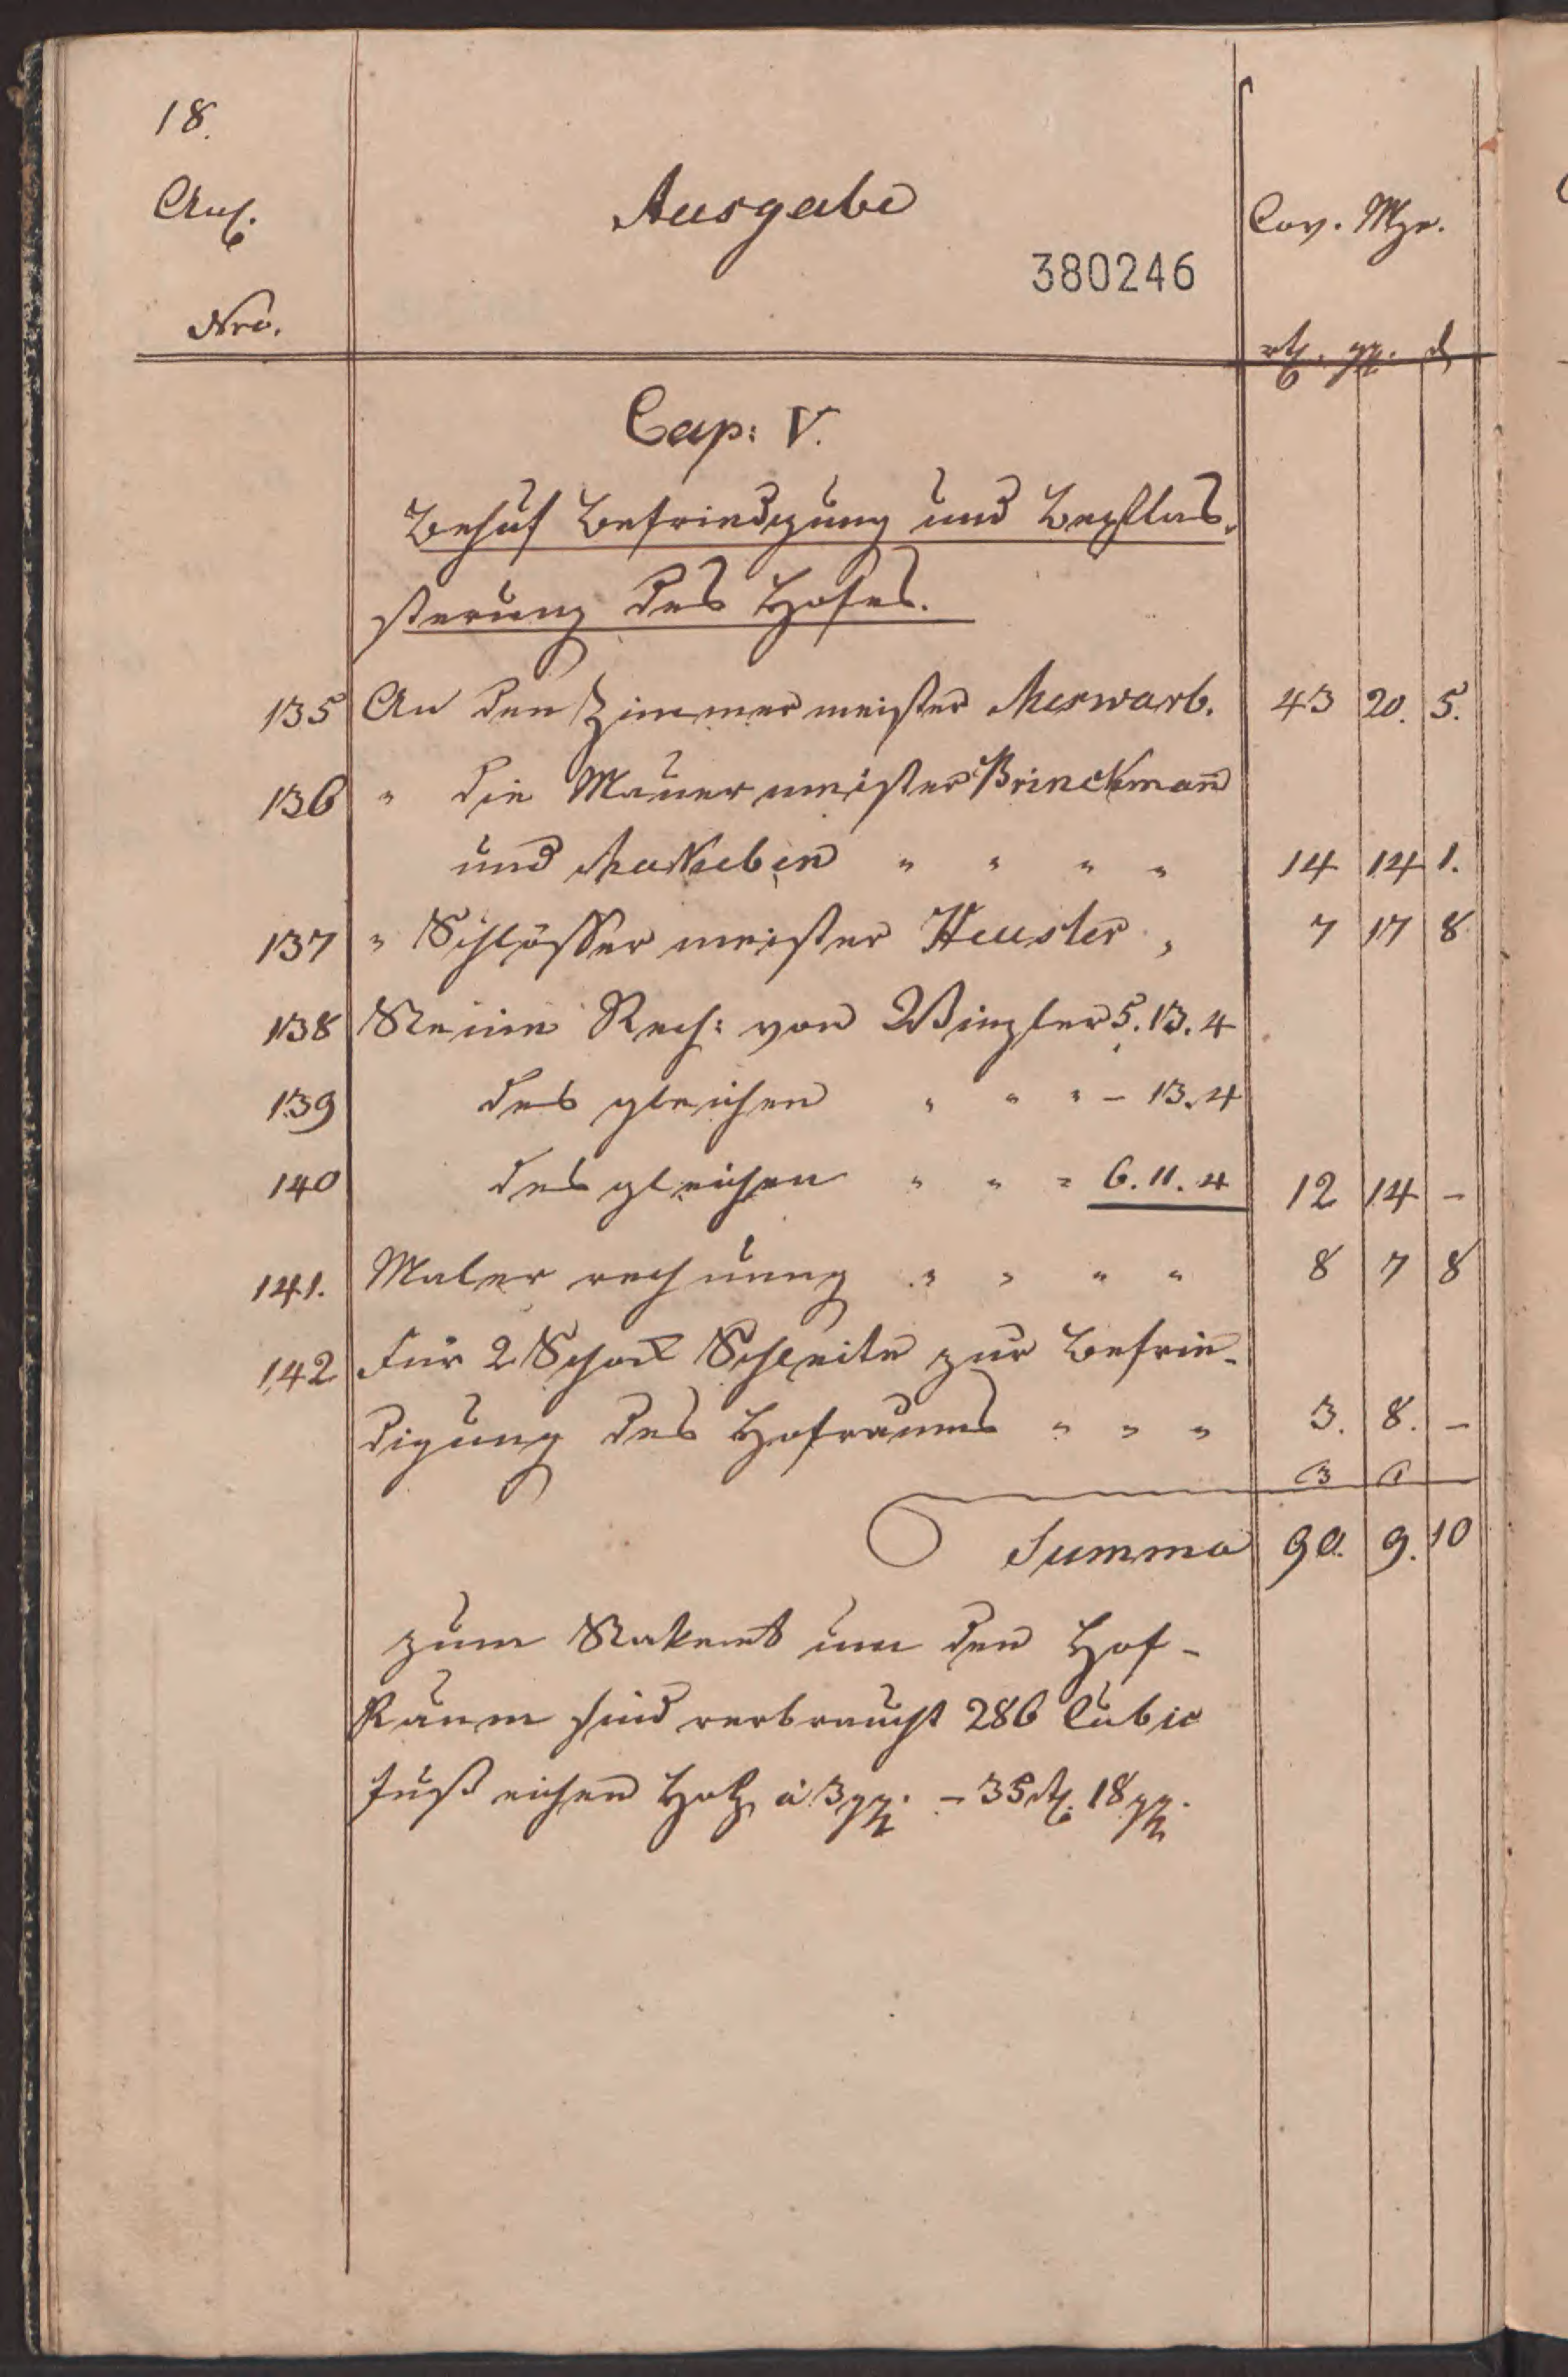 18.
Anl. Ausgabe Cov. Mze.
380246
Nro. rth. ggr. d
Cap: V.
Behuf Befriedigung und Bepflas-
sterung des Hofes.
135 An den Zimmermeister Merwarb. 43 20. 5.
136 " die Mauermeister Brinckmann
und " " " " 14 14 1.
137 " Schlössermeister Heuster " 7 17 8
138 Steine Rech: von 5. 13. 4
139 des gleichen " " " – 13. 4
140 des gleichen " " " 6. 11. 4 12 14 –
141. Maler rechnung " " " " 8 7 8
142 Für 2 Schock Schleite zur Befrie-
digung des Hofraums " " " 3. 8. –
3 1
Summa 90. 9. 10
zum Staket um den Hof-
Raum sind verbraucht 286 Cubic
Fuß eichen Holz à 3 ggr. – 35 rth. 18 ggr.